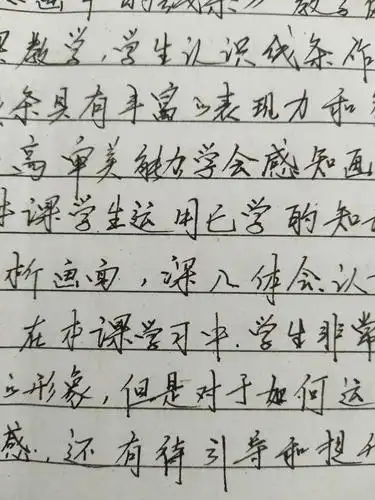 画中的线条》教
教学,学生认识线条作
条具有丰富的表现力和
高审美能力学会感知画
本课学生运用已学的知
析画面,深入体会认
在本课学习中.学生非常
的形象,但是对于如何运
感.还有待引导和提